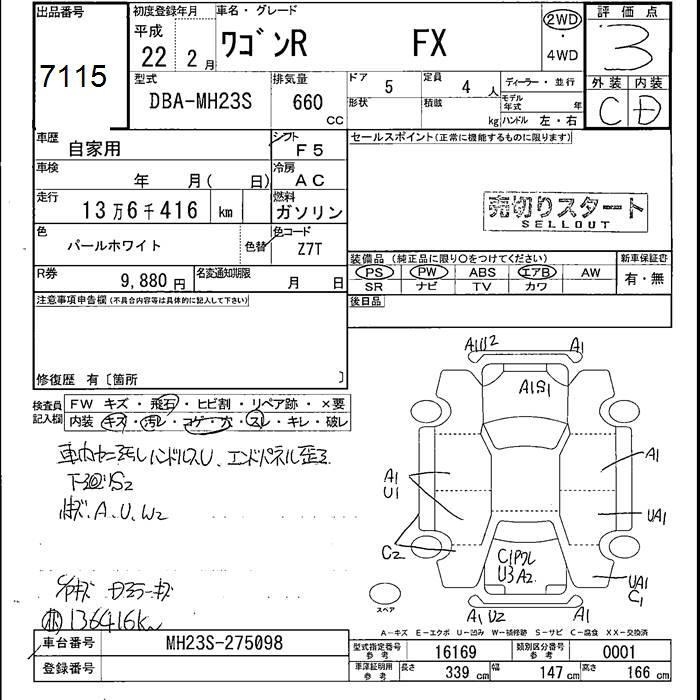 出品番号
7115
初度登録年月
平成
22 2 月
車名・グレード
ワゴンR FX
2WD
・
4WD
評価点
3
外装 内装
C D
型式
DBA-MH23S
排気量
660 CC
ドア 5
定員 4 人
形状
積載 kg
ディーラー・並行
モデル年式 年
ハンドル 左・右
車歴
自家用
シフト
F5
車検
年 月( 日)
冷房
AC
走行
13万6千416 km
燃料
ガソリン
色
パールホワイト
色替
色コード
Z7T
R券
9,880 円
名変通知期限
月 日
セールスポイント(正常に機能するものに限ります)
売切りスタート
SELLOUT
装備品(純正品に限り○をつけてください)
新車保証書
PS PW ABS エアB AW
有・無
SR ナビ TV カワ
後日品
注意事項申告欄(不具合内容等は具体的に記入して下さい)
修復歴 有〔箇所 〕
検査員記入欄
FW キズ・飛石・ヒビ割・リペア跡・×要
内装 キズ・汚れ・コゲ・穴・スレ・キレ・破レ
車内ヤニ汚レ ハンドルスレU、エンドパネル歪ミ
下廻りS2
A、U、W2
136416km
A1U2 A1
A1S1
A1
U1
A1
UA1
C2
C1
U3A2
UA1
C1
A1 U2 A1
スペア
A-キズ E-エクボ U-凹み W-補修跡 S-サビ C-腐食 XX-交換済
車台番号 MH23S-275098
登録番号
型式指定番号参考 16169
類別区分番号参考 0001
車庫証明用参考
長さ 339 cm
幅 147 cm
高さ 166 cm